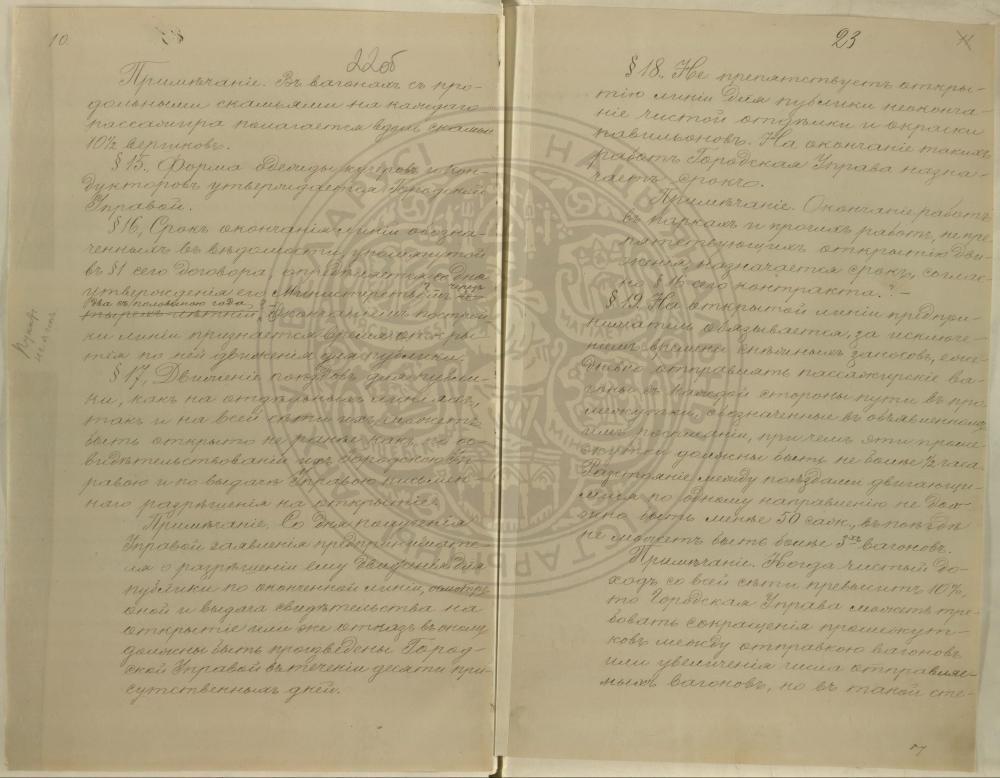 10.
22об
Примѣчаніе. Въ вагонахъ съ про-
дольными скамьями на каждаго
пассажира полагается вдоль скамьи
10½ вершковъ.
§ 15. Форма одежды кучеровъ и кон-
дукторовъ утверждается Городской
Управой.
§ 16. Срокъ окончанія линіи обозна-
ченныхъ въ вѣдомости, упомянутой
въ § 1 сего договора, опредѣляется со дня
утвержденія его Министерствомъ чрезъ
два съ половиною года.
Окончаніемъ построй-
ки линіи признается время откры-
тія по ней движенія для публики.
§ 17. Движеніе поѣздовъ для публи-
ки, какъ на отдѣльныхъ линіяхъ,
такъ и на всей сѣти ихъ можетъ
быть открыто не ранѣе какъ по ос-
видѣтельствованіи ихъ Городскою Уп-
равою и по выдачѣ Управою письмен-
наго разрѣшенія на открытіе.
Примѣчаніе. Со дня полученія
Управой заявленія предпринимате-
ля о разрѣшеніи ему движенія для
публики по оконченной линіи, осмотръ
оной и выдача свидѣтельства на
открытіе или же отказъ въ оному
должны быть произведены Город-
ской Управой въ теченіи десяти при-
сутственныхъ дней.
23
§ 18. Не препятствуетъ откры-
тію линіи для публики неоконча-
ніе чистой отдѣлки и окраски
павильоновъ. На окончаніе такихъ
работъ Городская Управа назна-
чаетъ срокъ.
Примѣчаніе. Окончаніе работъ
въ паркахъ и прочихъ работъ, не пре-
пятствующихъ открытію дви-
женія, назначается срокъ, соглас-
но § 16 его контракта.
§ 19. На открытой линіи предпри-
ниматель обязывается, за исключе-
ніемъ времени снѣжныхъ заносовъ, еже-
дневно отправлять пассажирскіе ва-
гоны съ каждой стороны пути въ про-
межутки, обозначенные въ объявленномъ
имъ росписаніи, при чемъ эти проме-
жутки должны быть не болѣе ½ часа.
Разстояніе между поѣздами двигающи-
мися по одному направленію не дол-
жно быть менѣе 50 саж., въ поѣздѣ
не можетъ быть болѣе 3хъ вагоновъ.
Примѣчаніе. Когда чистый до-
ходъ со всей сѣти превыситъ 10%,
то Городская Управа можетъ тре-
бовать сокращенія промежут-
ковъ между отправкою вагоновъ
или увеличенія числа отправляе-
мыхъ вагоновъ, но въ такой сте-